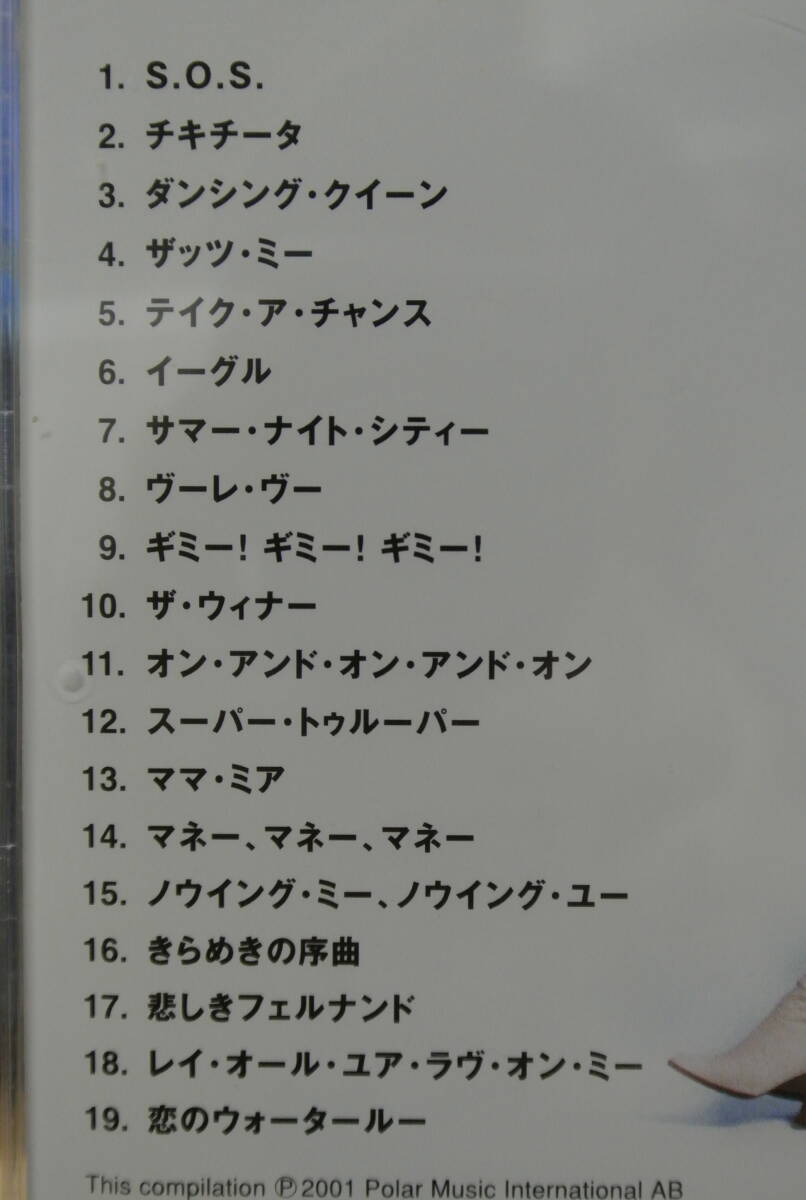 1. S.O.S.
2. チキチータ
3. ダンシング・クイーン
4. ザッツ・ミー
5. テイク・ア・チャンス
6. イーグル
7. サマー・ナイト・シティー
8. ヴーレ・ヴー
9. ギミー! ギミー! ギミー!
10. ザ・ウィナー
11. オン・アンド・オン・アンド・オン
12. スーパー・トゥルーパー
13. ママ・ミア
14. マネー、マネー、マネー
15. ノウイング・ミー、ノウイング・ユー
16. きらめきの序曲
17. 悲しきフェルナンド
18. レイ・オール・ユア・ラヴ・オン・ミー
19. 恋のウォータールー
This compilation ℗ 2001 Polar Music International AB